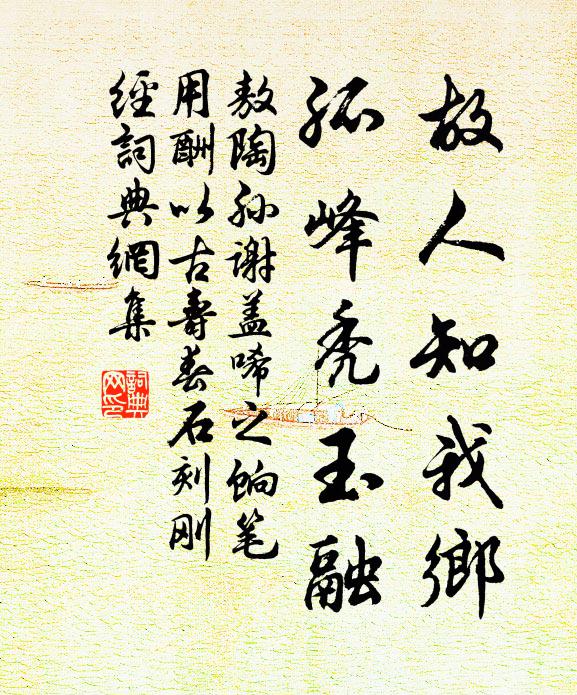 故人知我鄉
孤峰秃玉融
敖陶孙谢盖唏之餉笔
用酬以古壽春石刻刚
經詞典網集
詞典
网印